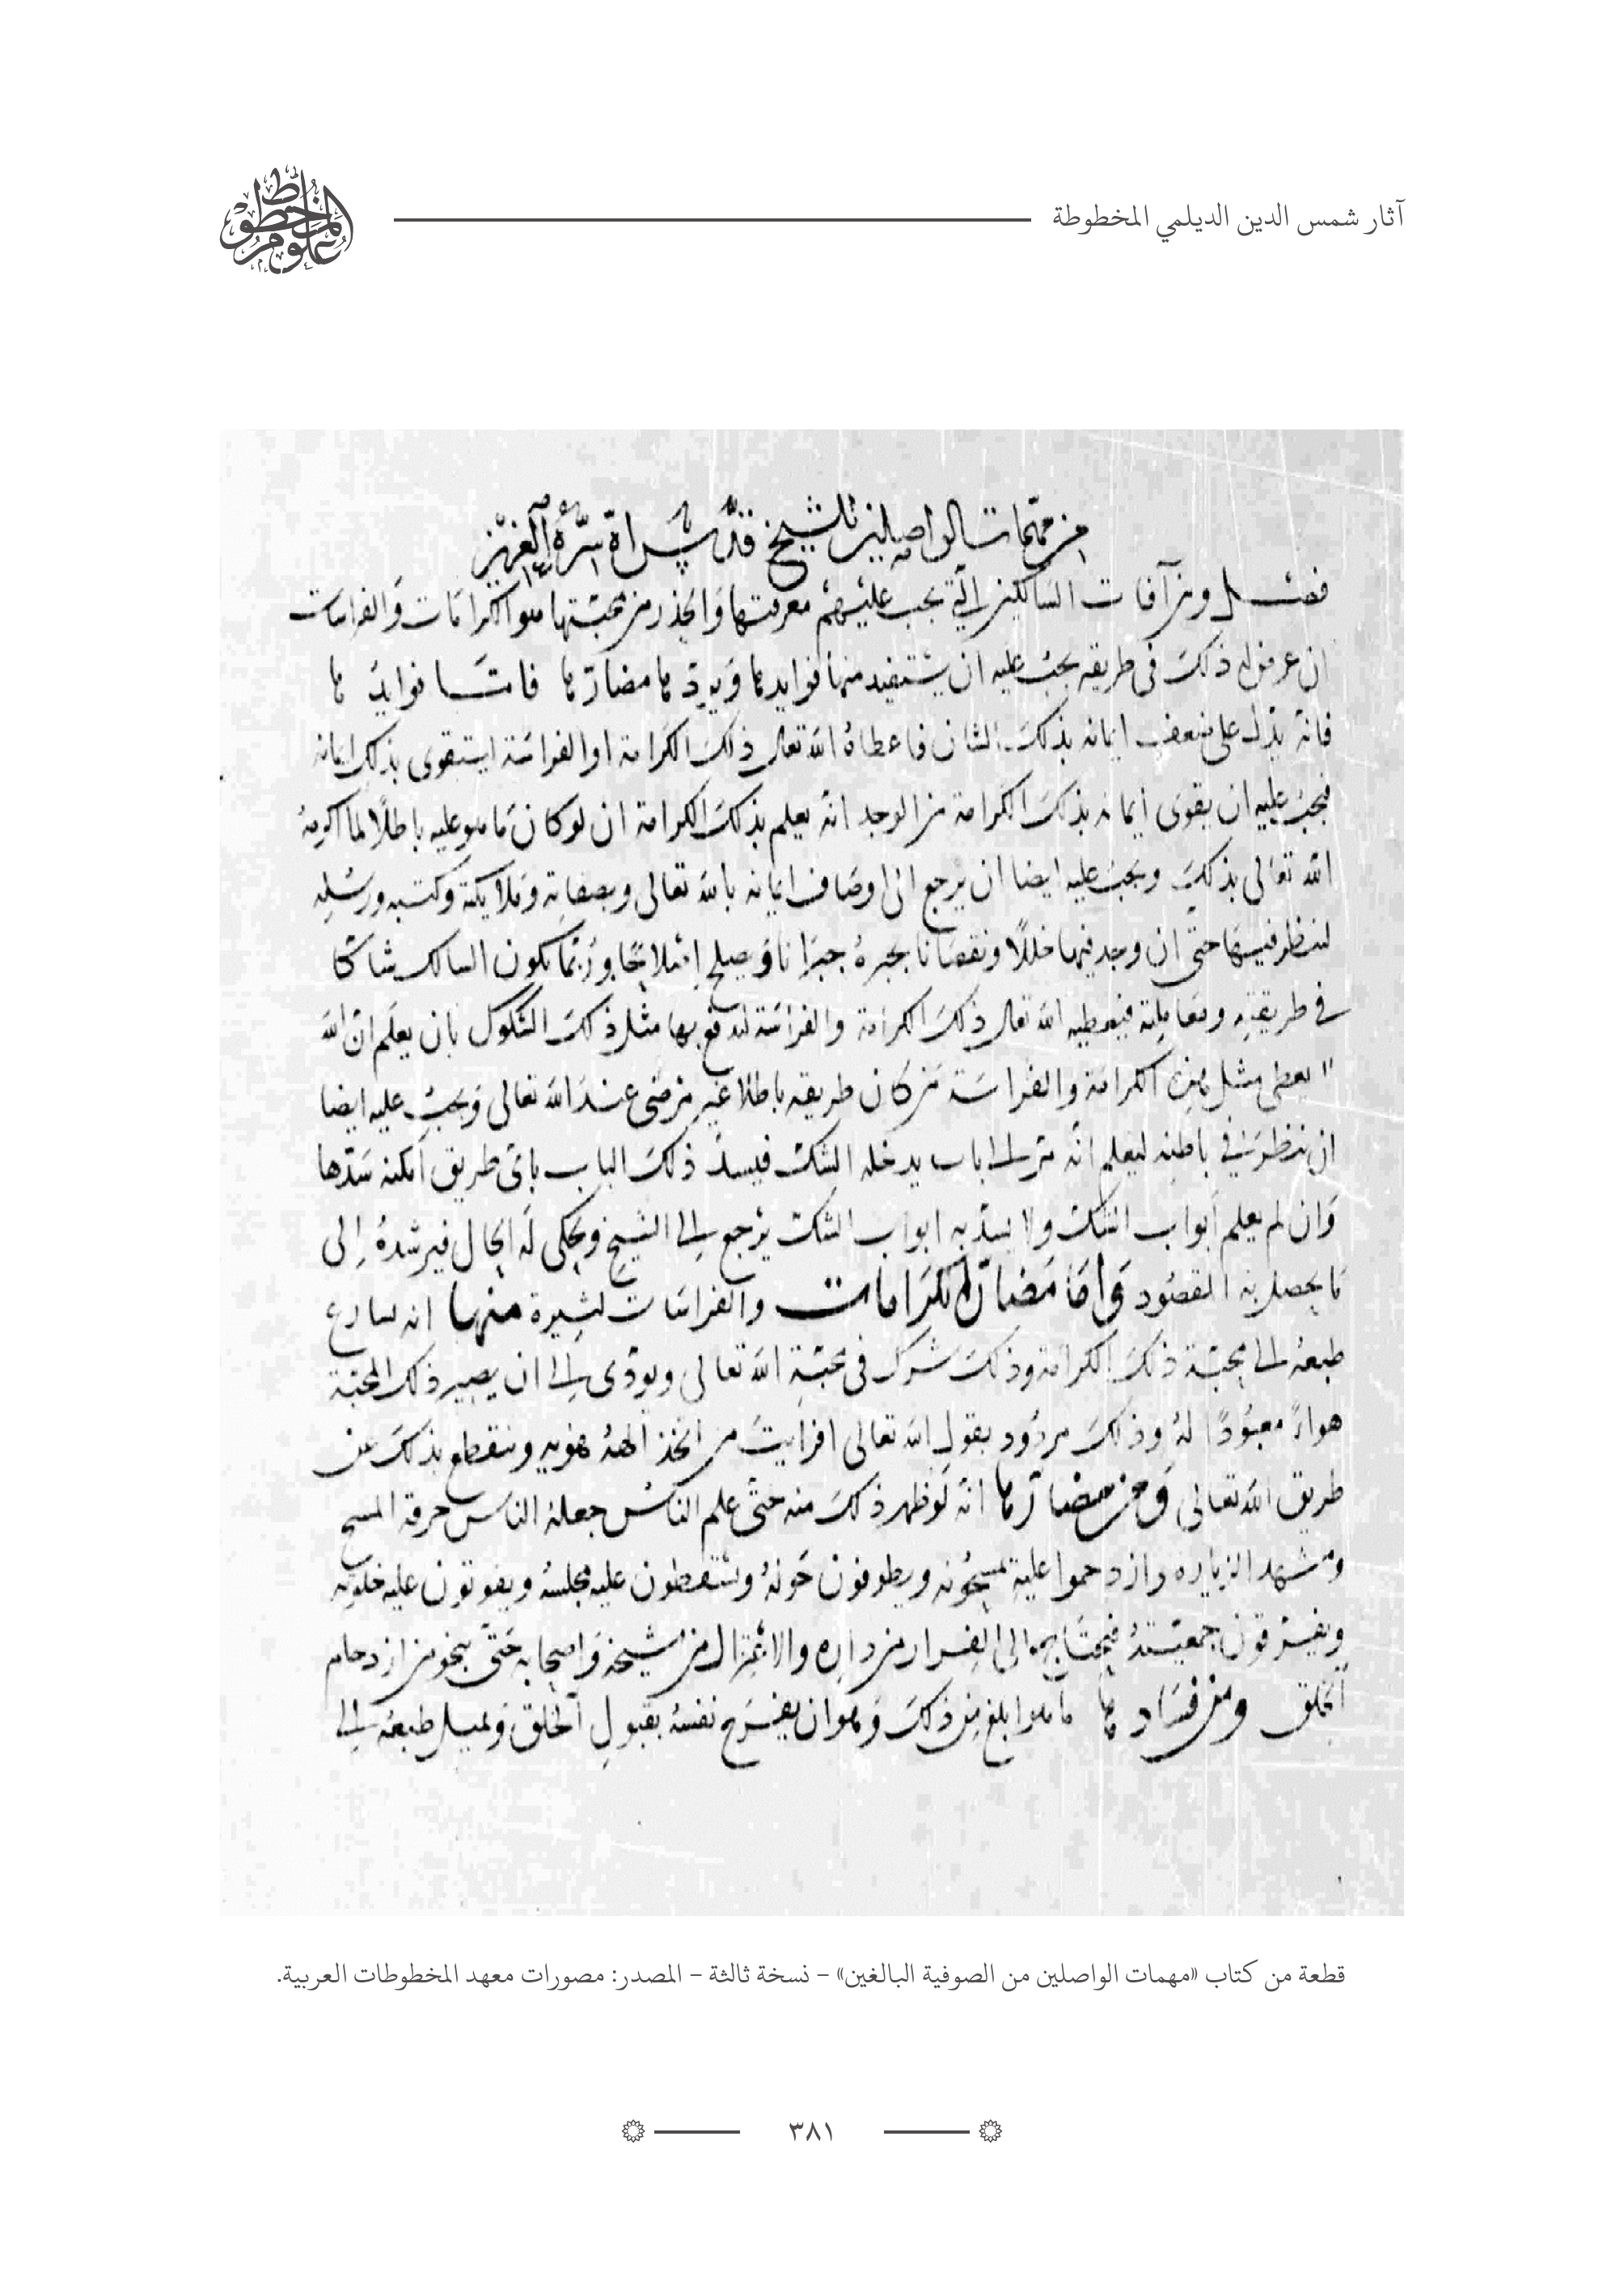 آثار شمس الدين الديلمي المخطوطة
علوم المخطوط
من مهمات الواصلين للشيخ قدس الله سره العزيز
فصل ومن آفات السالكين التي يجب عليهم معرفتها والحذر من محبتها هو الكرامات والفراسات
ذلك في طريقه يجب عليه ان يستفيد منها فوايدها ويرد ها مضارها فاما فوايد ها
فانه يدل على ضعف ايمانه بذلك الشان فاعطاه الله تعالى ذلك الكرامة او الفراسة ليتقوى بذلك ايمانه
فيجب عليه ان يقوى ايمانه بذلك الكرامة من الوجد انه يعلم بذلك الكرامة ان لو كان ما هو عليه باطلا لما اكرمه
الله تعالى بذلك ويجب عليه ايضا ان يرجع الى اوصاف ايمانه بالله تعالى وبصفاته وملايكته وكتبه ورسله
لينظر فيها حتى ان وجد فيها خللا ونقصانا بجبره جبرانا ويصلح اصلاحا وربما يكون السالك شاكا
في طريقته ومعاملته فيعطيه الله تعالى ذلك الكرامة والفراسة لتدفع بها مثل ذلك الشكوك بان يعلم ان الله
لا يعطى مثل هذه الكرامة والفراسة من كان طريقه باطلا غير مرضى عند الله تعالى ويجب عليه ايضا
ان ينظر في باطنه ليعلم انه من اى باب يدخله الشك فيسد ذلك الباب باى طريق امكنه سدها
وان لم يعلم ابواب الشك ولا يسد به ابواب الشك يرجع الى الشيخ ويحكى له الحال فيرشده الى
ما يحصل به المقصود واما مضار الكرامات والفراسات كثيرة منها انه يسارع
طبعه الى محبة ذلك الكرامة وذلك شرك في محبة الله تعالى ويودى الى ان يصير ذلك المحبة
هواء معبودا له وذلك مردود بقول الله تعالى افرايت من اتخذ الهه هويه وينقطع بذلك عن
طريق الله تعالى ومن مضارها انه لو ظهر ذلك منه حتى علم الناس جعله الناس خرقة المسح
ومشهد الزياره وازدحموا عليه يمسحونه ويطوفون حوله ويسقطون عليه مجلسه ويفوتون عليه خلوته
ويفرقون جمعيته فيحتاج الى الفرار من داره والاعتزال من شيخه واصحابه حتى ينجو من ازدحام
الخلق ومن فساد ها ما هو ابلغ من ذلك وهو ان يفرح نفسه بقبول الخلق ويميل طبعه الى
قطعة من كتاب «مهمات الواصلين من الصوفية البالغين» – نسخة ثالثة – المصدر: مصورات معهد المخطوطات العربية.
٣٨١